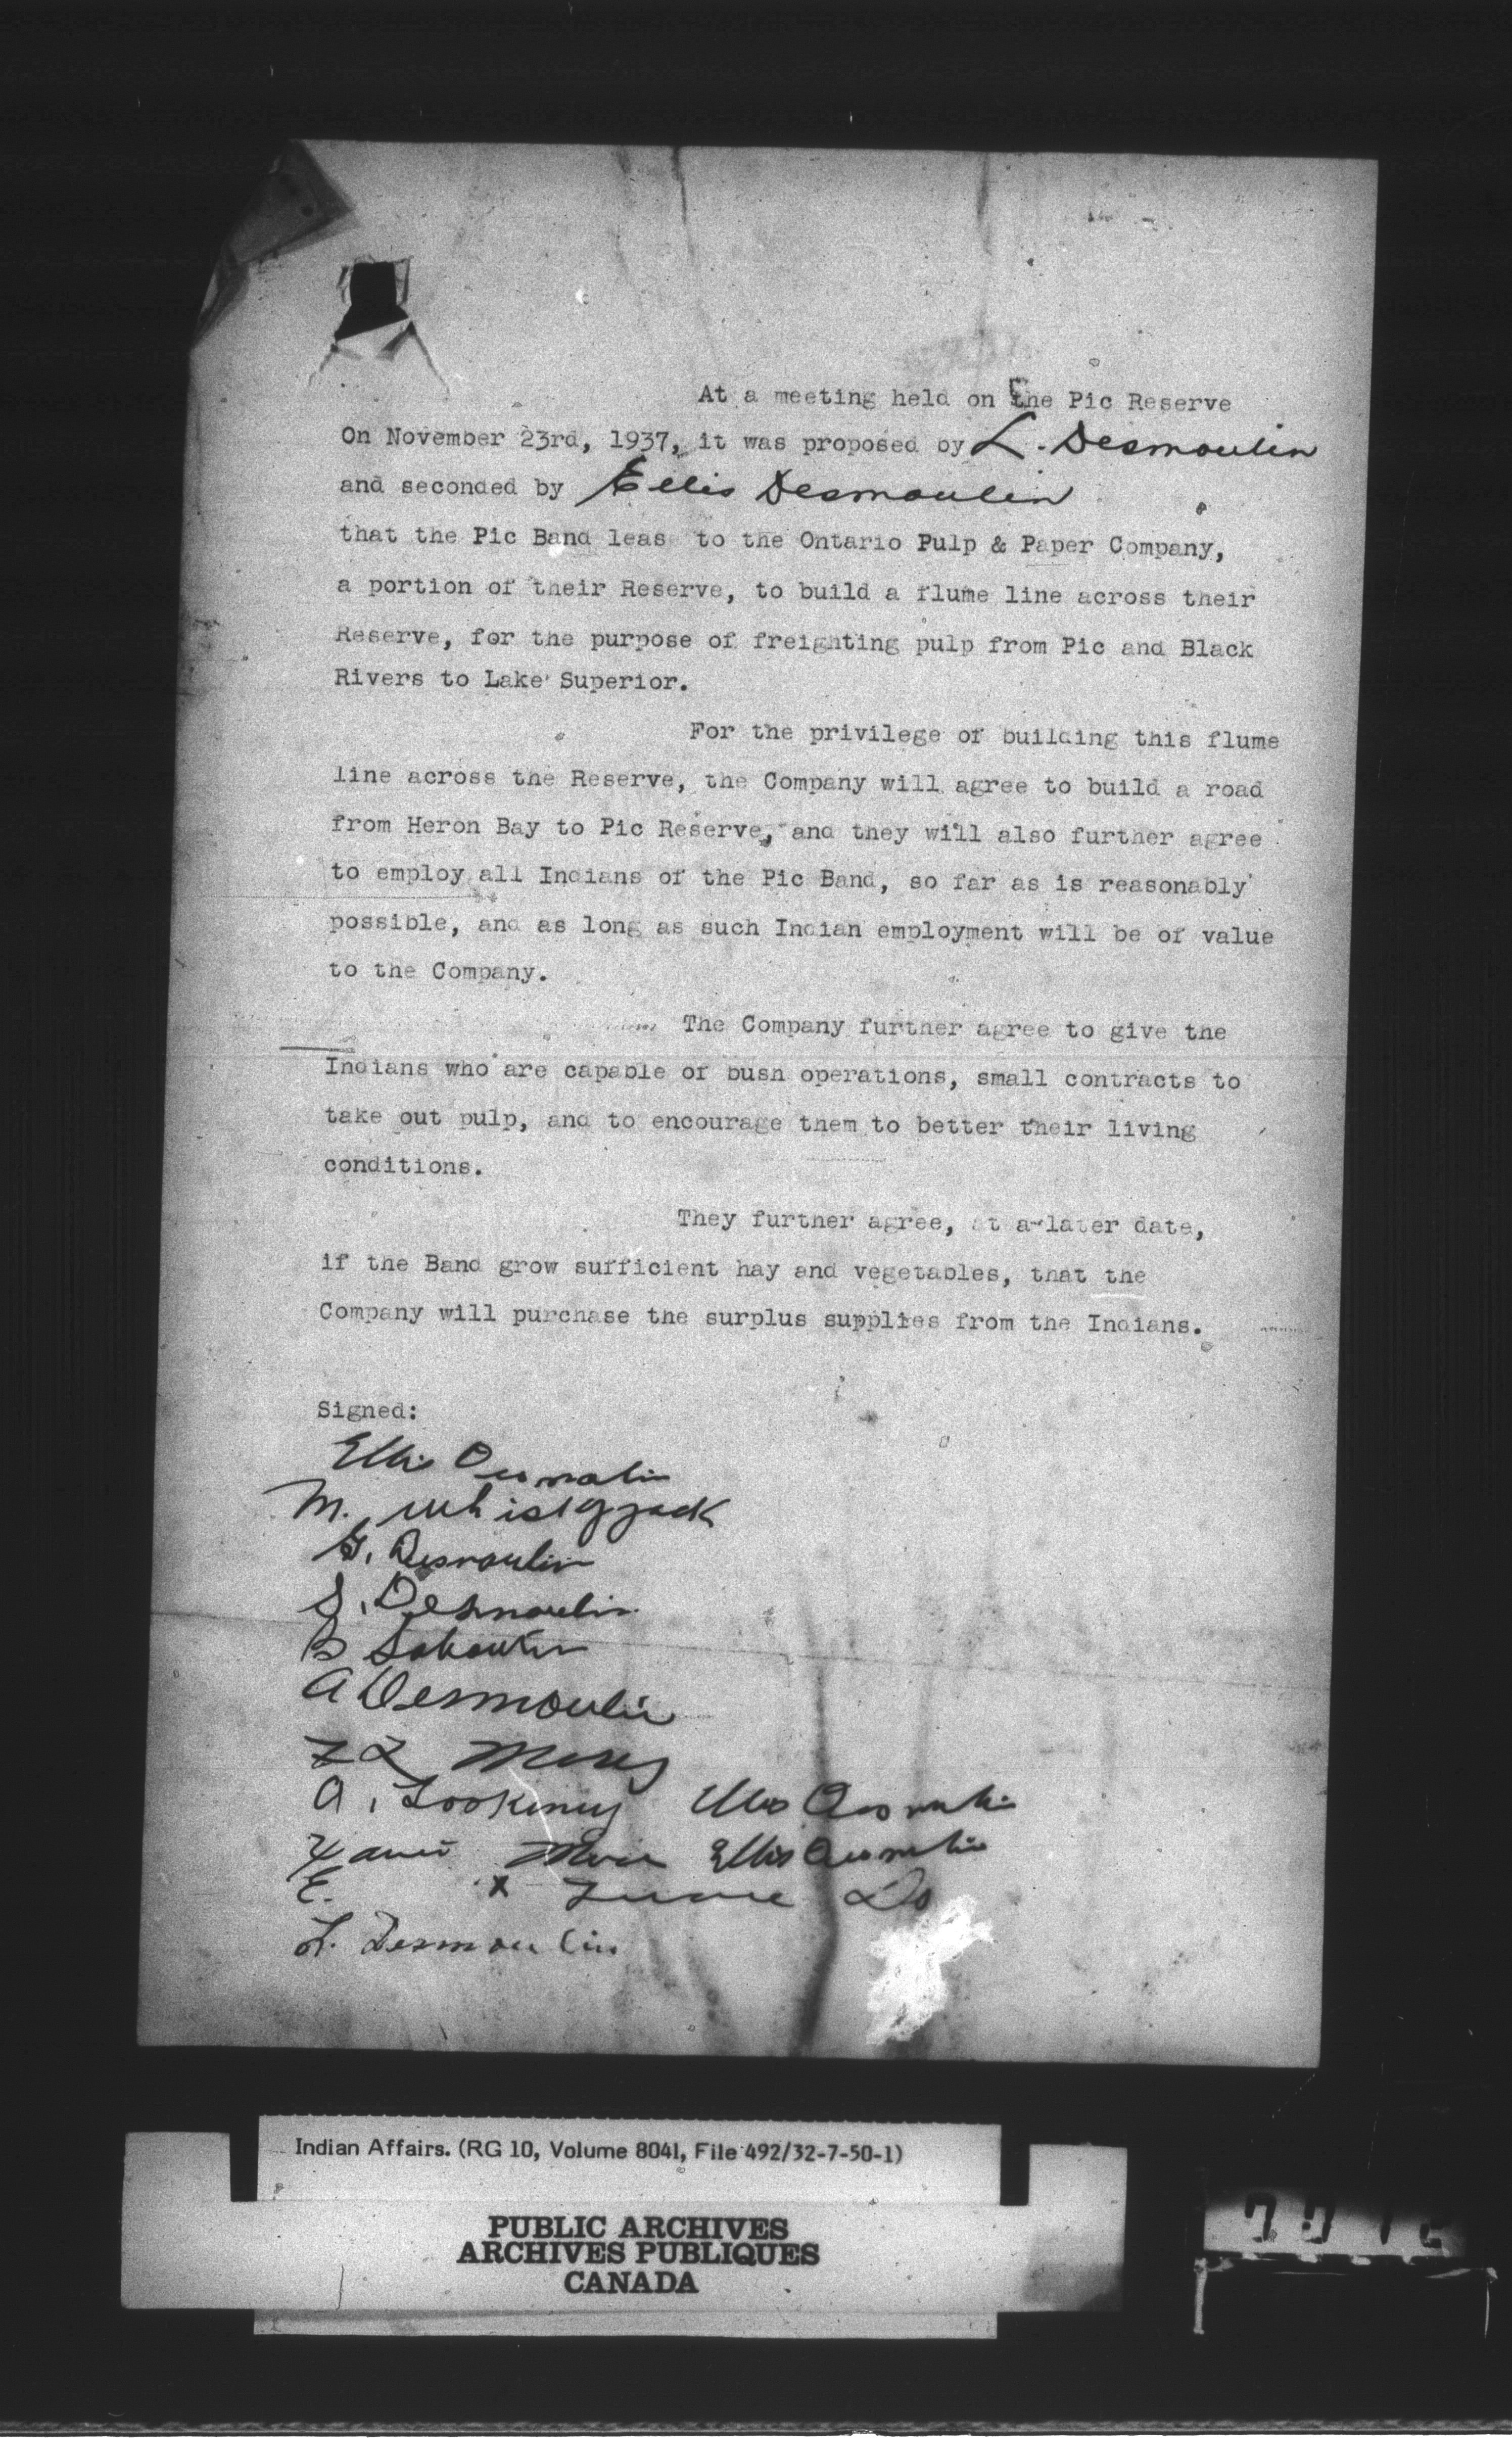 At a meeting held on the Pic Reserve
On November 23rd, 1937, it was proposed by L. Desmoulin
and seconded by Ellis Desmoulin
that the Pic Band leas to the Ontario Pulp & Paper Company,
a portion of their Reserve, to build a flume line across their
Reserve, for the purpose of freighting pulp from Pic and Black
Rivers to Lake Superior.
For the privilege of building this flume
line across the Reserve, the Company will agree to build a road
from Heron Bay to Pic Reserve, and they will also further agree
to employ all Indians of the Pic Band, so far as is reasonably
possible, and as long as such Indian employment will be of value
to the Company.
The Company further agree to give the
Indians who are capable of bush operations, small contracts to
take out pulp, and to encourage them to better their living
conditions.
They further agree, at a later date,
if the Band grow sufficient hay and vegetables, that the
Company will purchase the surplus supplies from the Indians.
Signed:
Ellis
M.
G. Desmoulin
S. Desmoulin
B
A Desmoulin
Moses
A.
Ellis
E. x
L. Desmoulin
Indian Affairs. (RG 10, Volume 8041, File 492/32-7-50-1)
PUBLIC ARCHIVES
ARCHIVES PUBLIQUES
CANADA